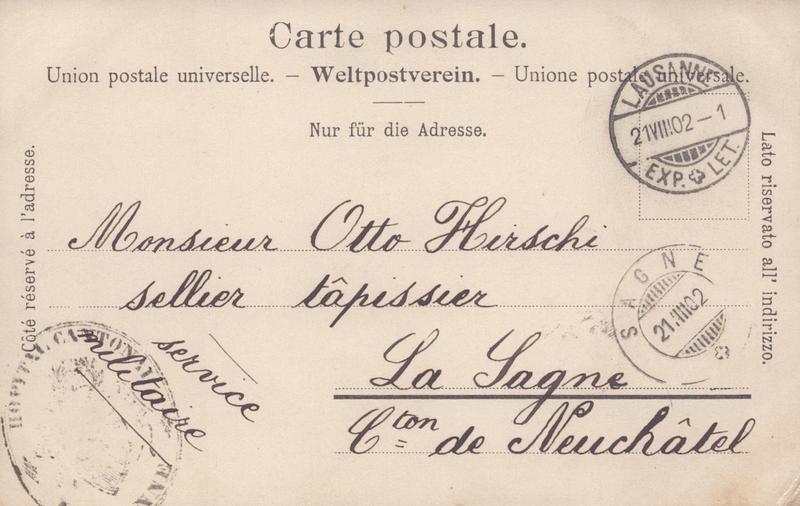 Carte postale.
Union postale universelle. – Weltpostverein. – Unione postale universale.
Nur für die Adresse.
Côté réservé à l'adresse.
Lato riservato all' indirizzo.
LAUSANNE
21 VIII 02 – 1
EXP. LET.
Monsieur Otto Hirschi
sellier tâpissier
La Sagne
Cton de Neuchâtel
service
militaire
SAGNE
21.III.02
HOPITAL CANTONAL
NNE